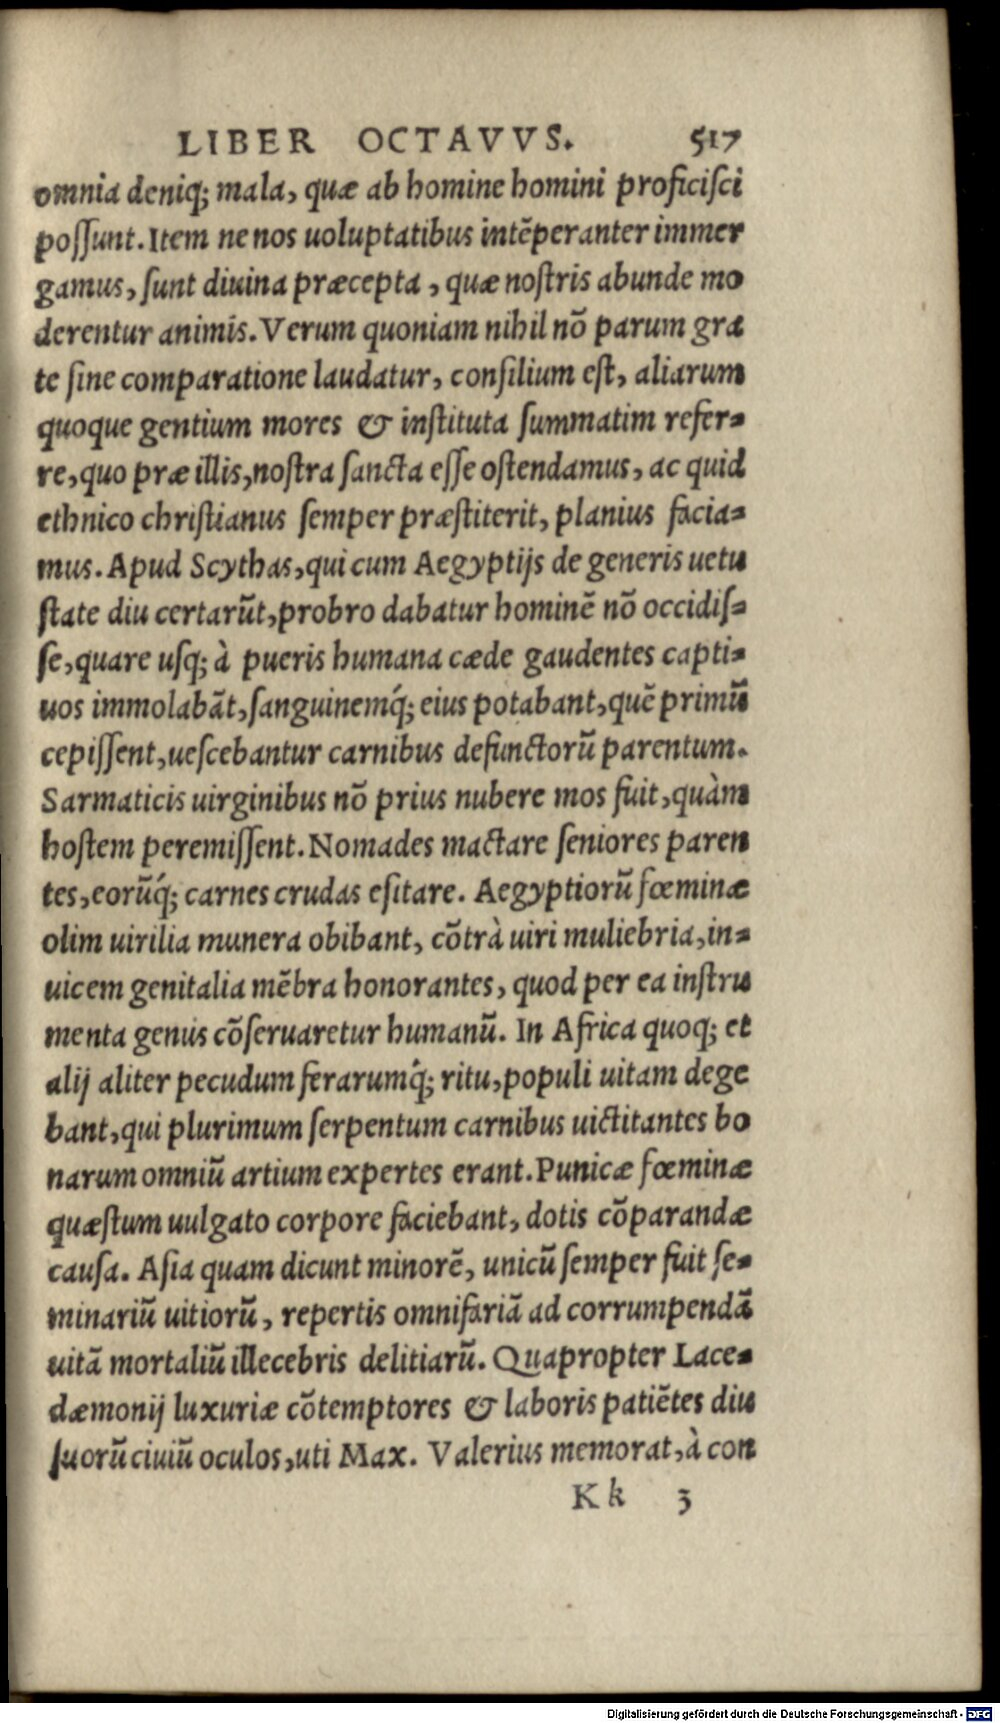 LIBER OCTAVVS. 517
omnia deniq; mala, quæ ab homine homini proficiſci
poſſunt. Item ne nos uoluptatibus intẽperanter immer
gamus, ſunt diuina præcepta, quæ noſtris abunde mo
derentur animis. Verum quoniam nihil nõ parum gra
te ſine comparatione laudatur, conſilium eſt, aliarum
quoque gentium mores & inſtituta ſummatim refer-
re, quo præ illis, noſtra ſancta eſſe oſtendamus, ac quid
ethnico chriſtianus ſemper præſtiterit, planius facia-
mus. Apud Scythas, qui cum Aegyptijs de generis uetu
ſtate diu certarũt, probro dabatur hominẽ nõ occidiſ-
ſe, quare uſq; à pueris humana cæde gaudentes capti-
uos immolabãt, ſanguinemq́; eius potabant, quẽ primũ
cepiſſent, ueſcebantur carnibus defunctorũ parentum.
Sarmaticis uirginibus nõ prius nubere mos fuit, quàm
hoſtem peremiſſent. Nomades mactare ſeniores paren
tes, eorũq́; carnes crudas eſitare. Aegyptiorũ fœminæ
olim uirilia munera obibant, cõtrà uiri muliebria, in-
uicem genitalia mẽbra honorantes, quod per ea inſtru
menta genus cõſeruaretur humanũ. In Africa quoq; et
alij aliter pecudum ferarumq́; ritu, populi uitam dege
bant, qui plurimum ſerpentum carnibus uictitantes bo
narum omniũ artium expertes erant. Punicæ fœminæ
quæſtum uulgato corpore faciebant, dotis cõparandæ
cauſa. Aſia quam dicunt minorẽ, unicũ ſemper fuit ſe-
minariũ uitiorũ, repertis omnifariã ad corrumpendã
uitã mortaliũ illecebris delitiarũ. Quapropter Lace-
dæmonij luxuriæ cõtemptores & laboris patiẽtes diu
ſuorũ ciuiũ oculos, uti Max. Valerius memorat, à con
Kk 3
Digitalisierung gefördert durch die Deutsche Forschungsgemeinschaft - DFG